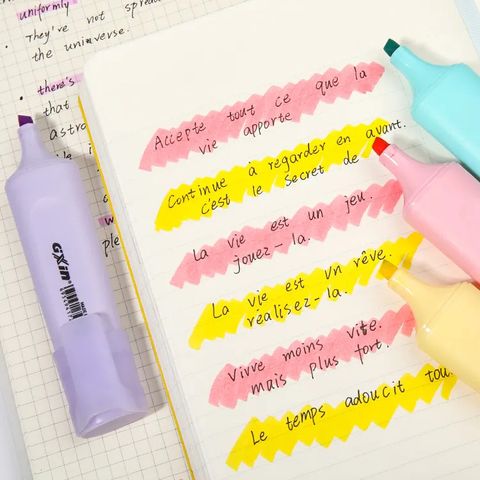 uniformly
They've not spread
the universe.
there's
that
astro
ple
Accepte tout ce que la
vie apporte
Continue à regarder en avant.
c'est le secret de
La vie est un jeu.
jouez-la.
La vie est un rêve.
réalisez-la.
Vivre moins vite.
mais plus fort.
Le temps adoucit tou
GXin